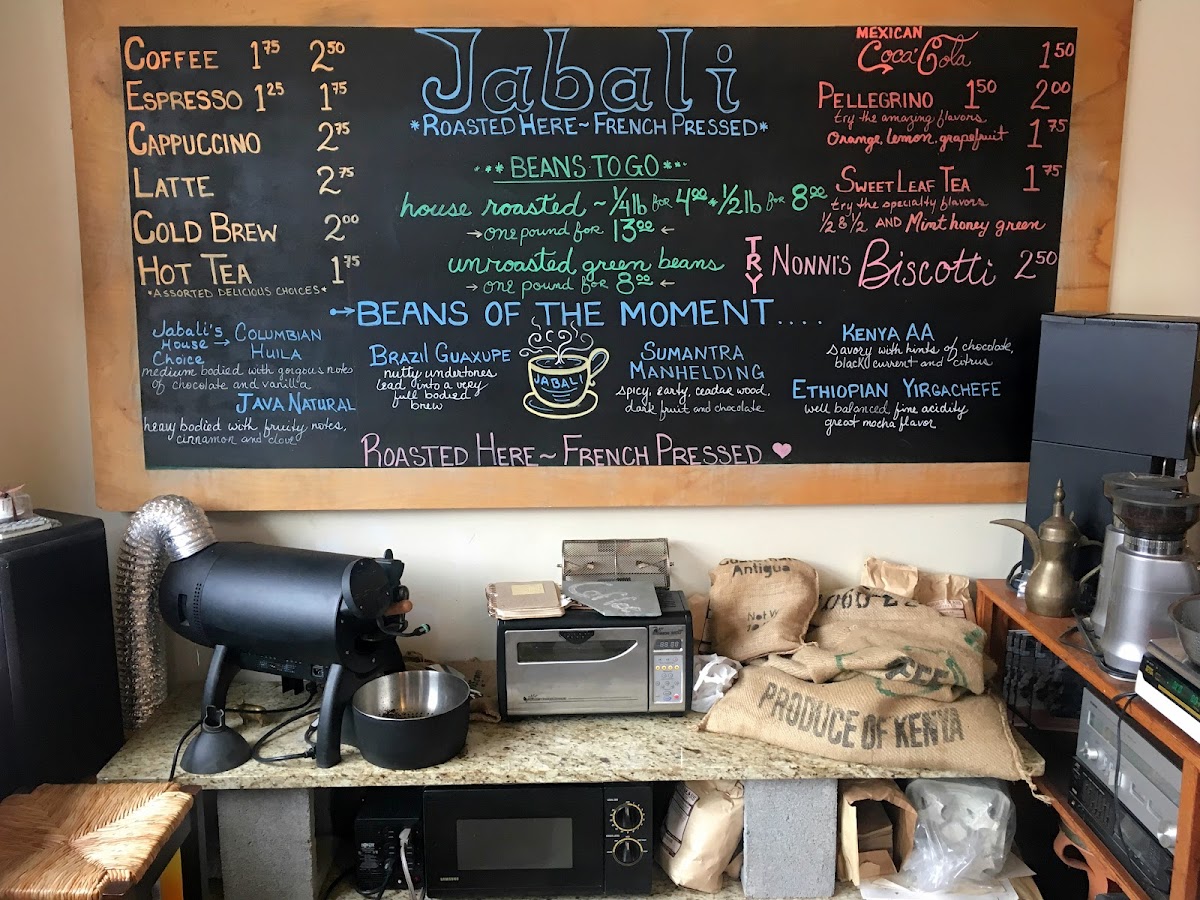 COFFEE 1 75 2 50
ESPRESSO 1 25 1 75
CAPPUCCINO 2 75
LATTE 2 75
COLD BREW 2 00
HOT TEA 1 75
*ASSORTED DELICIOUS CHOICES*
Jabali
*ROASTED HERE~FRENCH PRESSED*
BEANS TO GO
house roasted ~ 1/4 lb for 4 00 * 1/2 lb for 8 00
→one pound for 13 00←
unroasted green beans
→one pound for 8 00←
MEXICAN
Coca-Cola 1 50
PELLEGRINO 1 50 2 00
try the amazing flavors
Orange, lemon, grapefruit 1 75
SWEET LEAF TEA 1 75
try the specialty flavors
1/2 & 1/2 AND Mint honey green
TRY NONNI'S Biscotti 2 50
BEANS OF THE MOMENT....
Jabali's
House →
Choice
COLUMBIAN
HUILA
medium bodied with gorgous notes
of chocolate and vanilla
JAVA NATURAL
heavy bodied with fruity notes,
cinnamon and clove
BRAZIL GUAXUPE
nutty undertones
lead into a very
full bodied
brew
JABALI
SUMANTRA
MANHELDING
spicy, early, ceadar wood,
dark fruit and chocolate
KENYA AA
savory with hints of chocolate,
black current and citrus
ETHIOPIAN YIRGACHEFE
well balanced, fine acidity
great mocha flavor
ROASTED HERE~ FRENCH PRESSED
Antigua
PRODUCE OF KENYA